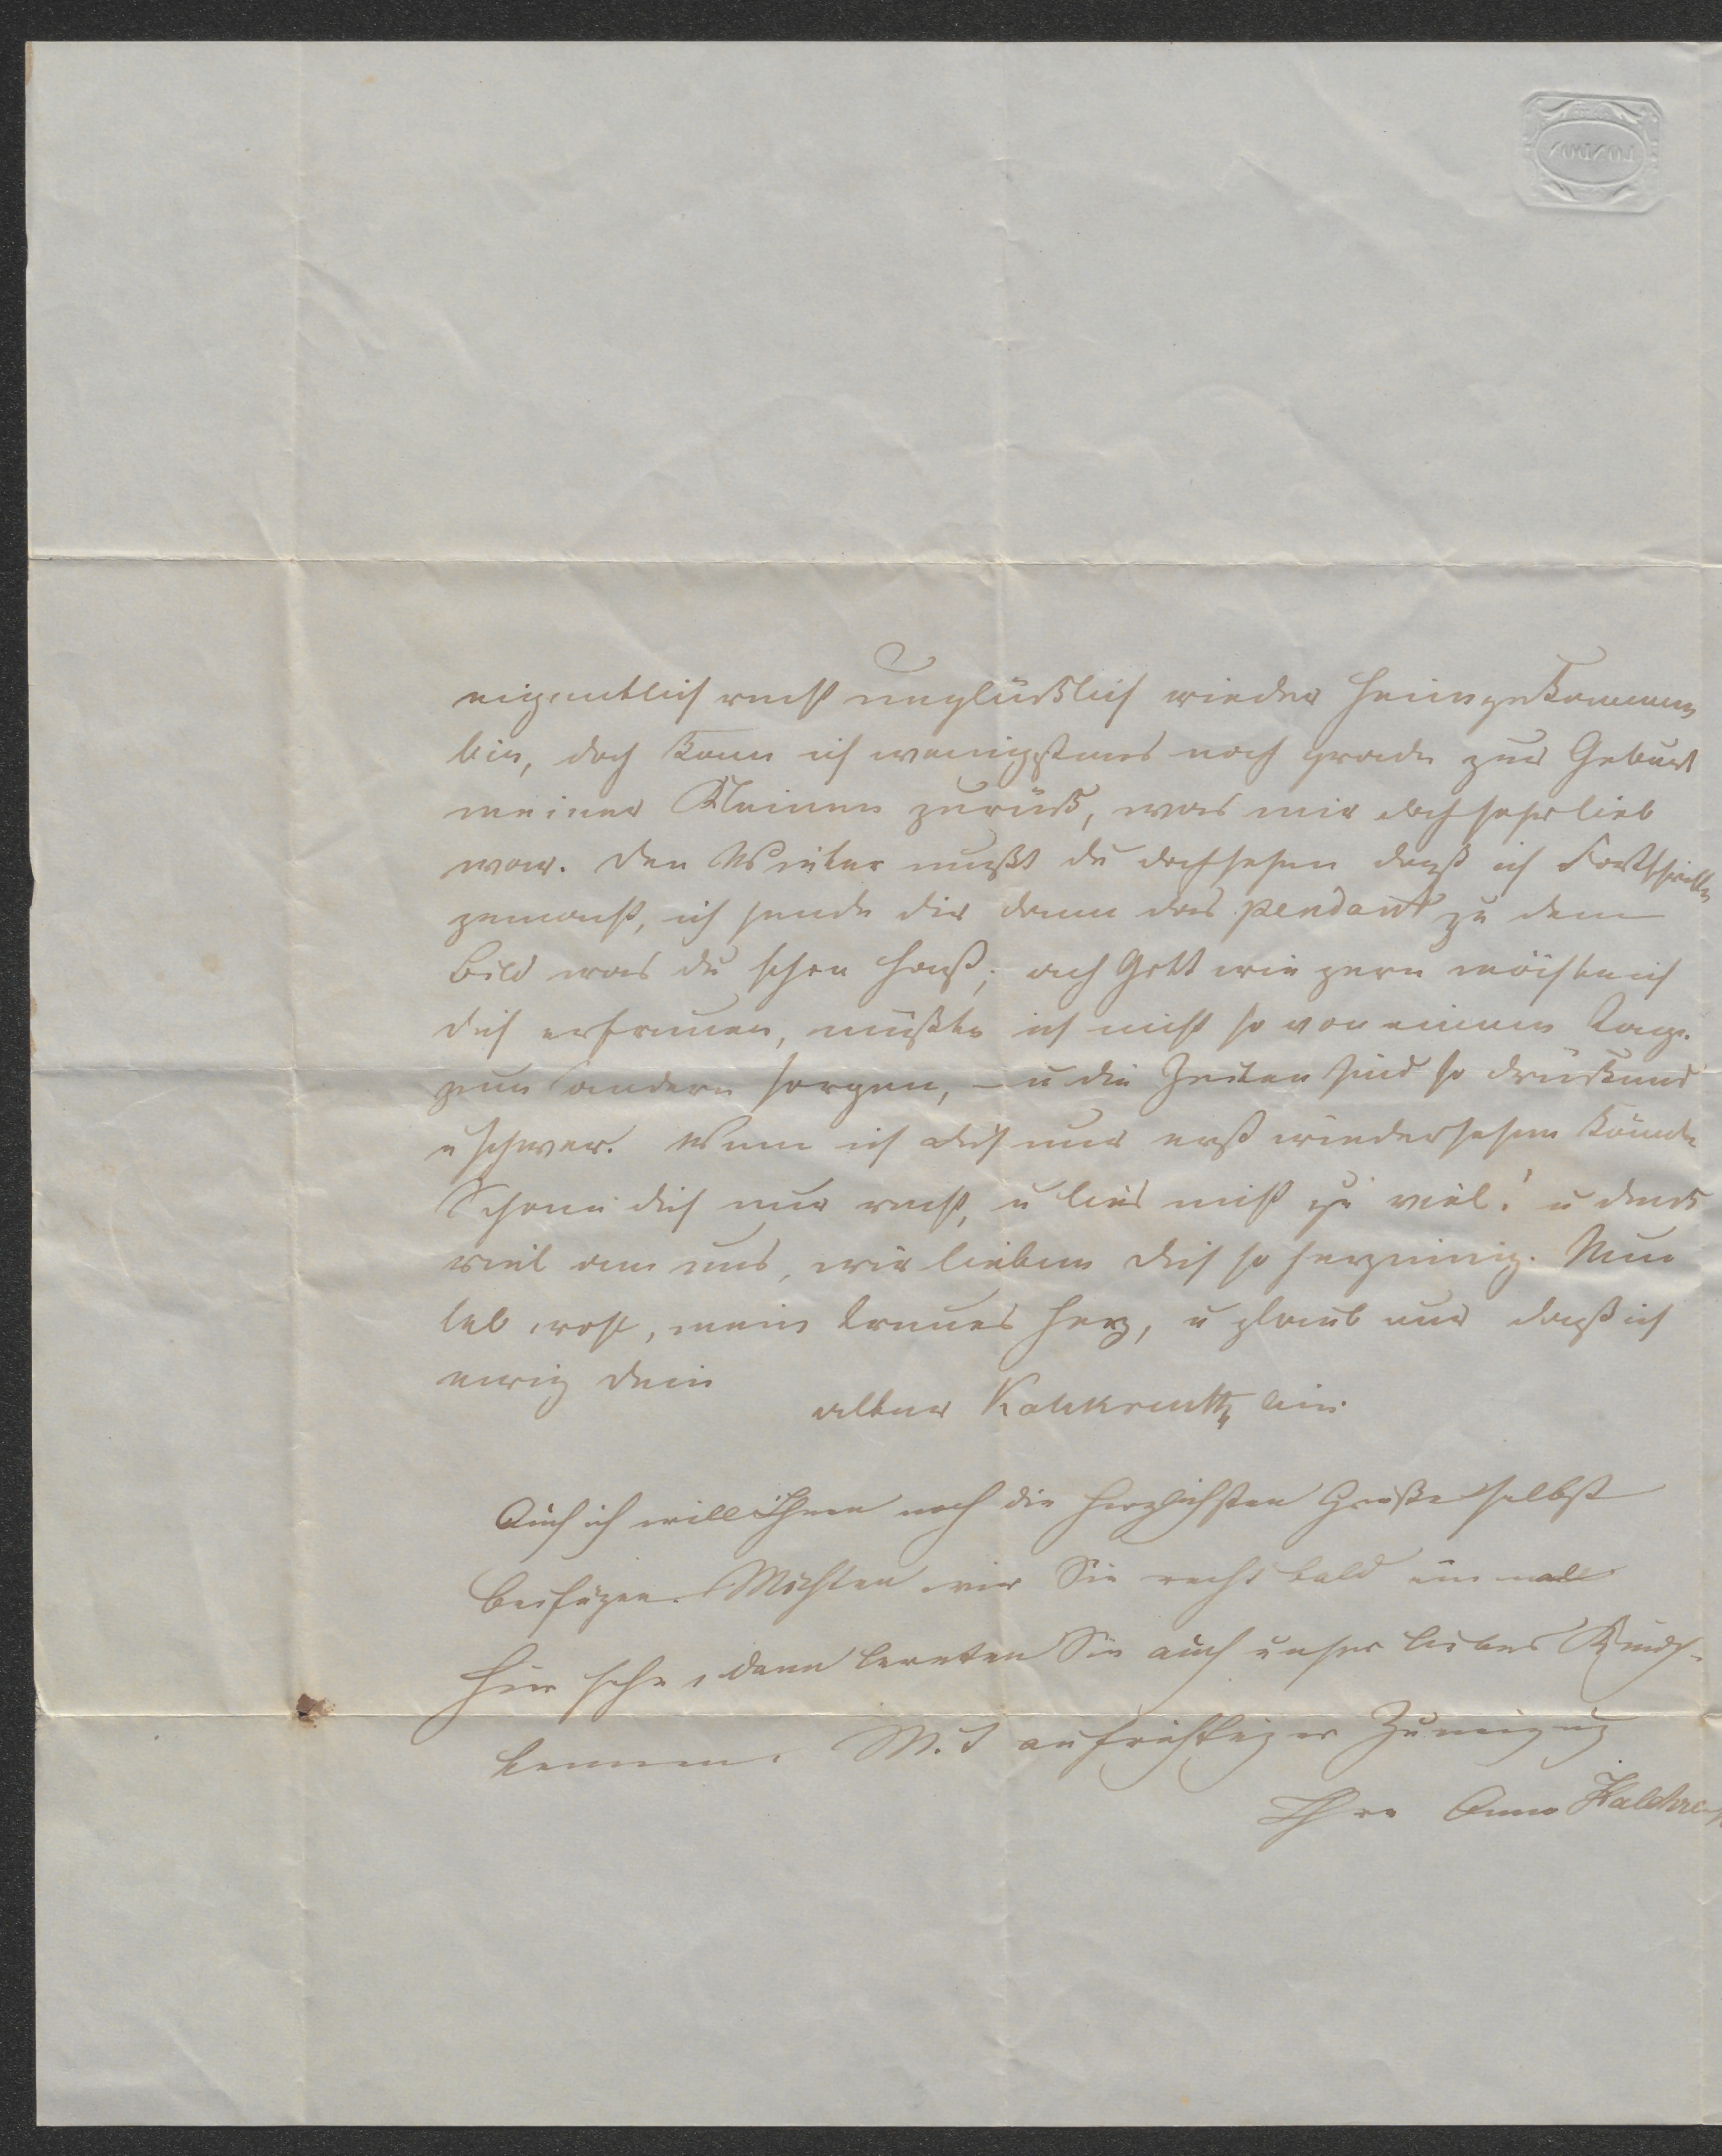 LONDON
eigentlich recht unglücklich wieder heimgekommen
bin, doch kam ich wenigstens noch grade zur Geburt
meiner Kleinen zurück, was mir doch sehr lieb
war. Den Winter mußt du doch sehen daß ich Fortschritte
gemacht, ich sende dir dann das pendant zu dem
Bild was du schon hast; ach Gott wie gern möchte ich
dich erfreuen, müßte ich nicht so von einem Tage
zum andern sorgen, – u die Zeiten sind so drückend
u schwer. Wenn ich dich nur erst wiedersehen könnte
Schone dich nur recht, u lies nicht zu viel! u denk
viel an uns, wir lieben dich so herzinnig. Nun
leb wohl, mein treues Herz, u glaub nur daß ich
ewig dein
alter Kalckreuth bin.
Auch ich will Ihnen noch die herzlichsten Grüße selbst
beifügen. Möchten wir Sie recht bald einmal
hier sehn, dann lernten Sie auch unser liebes Kindch.
kennen. Mit aufrichtiger Zuneigung
Ihre Anna Kalckreuth